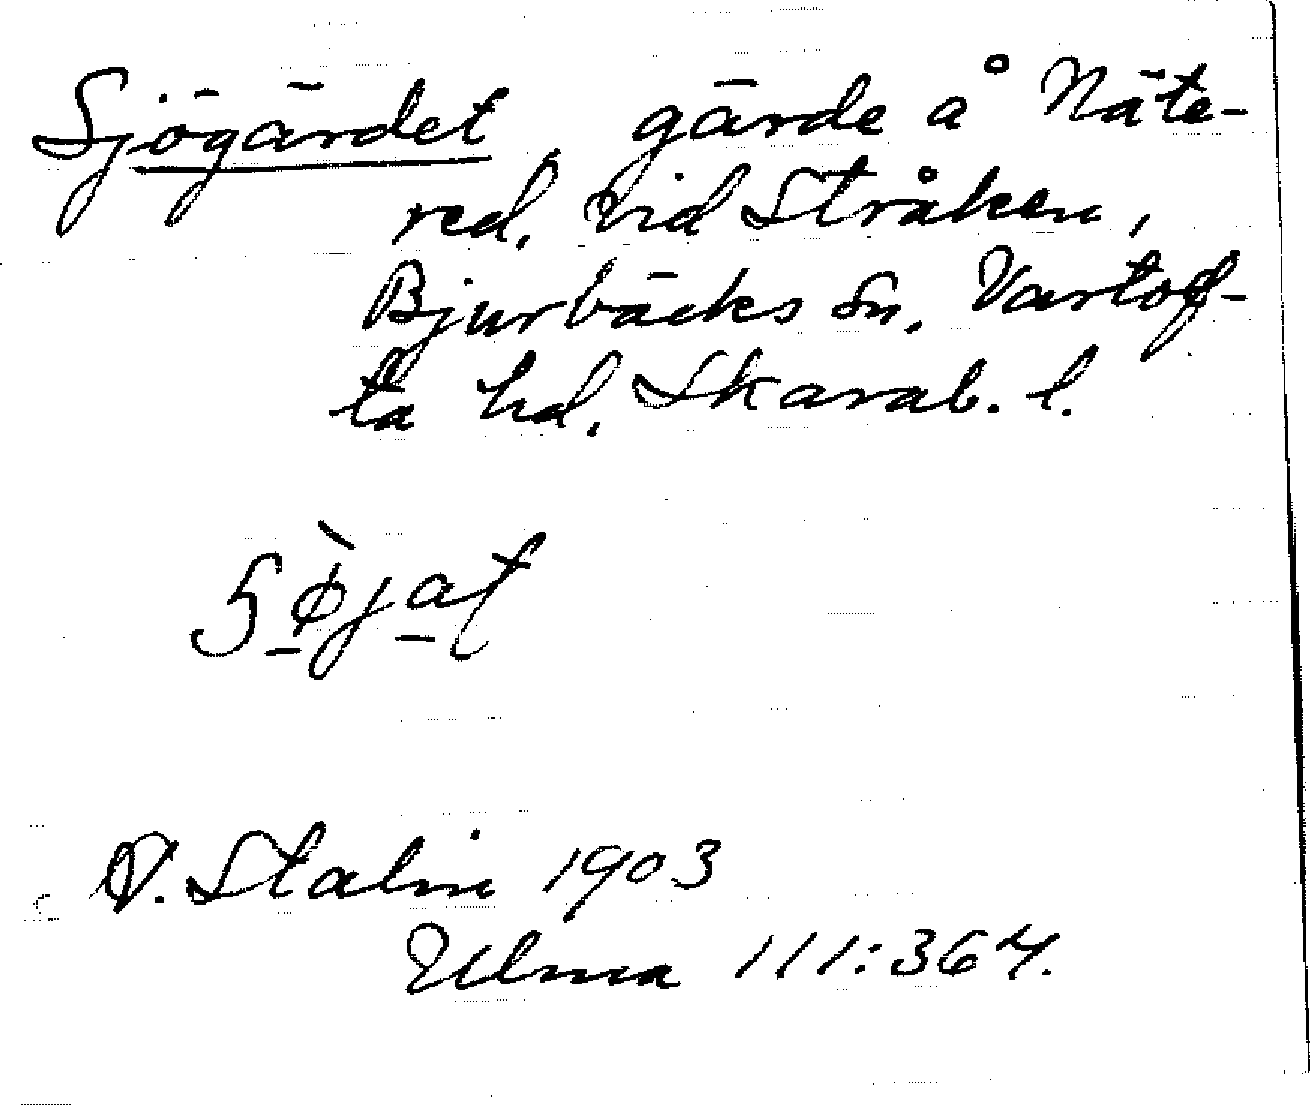 Sjögärdet, gärde å Näte-
red, vid Stråken,
Bjurbäcks sn, Vartof-
ta hd, Skarab. l.
V. Stalin 1903
Ulma 111:367.